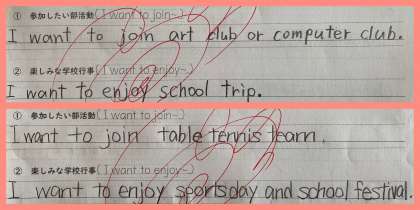 ① 参加したい部活動(I want to join~)
I want to join art club or computer club.
② 楽しみな学校行事(I want to enjoy~)
I want to enjoy school trip.
① 参加したい部活動(I want to join~)
I want to join table tennis team.
② 楽しみな学校行事(I want to enjoy~)
I want to enjoy sportsday and school festival.